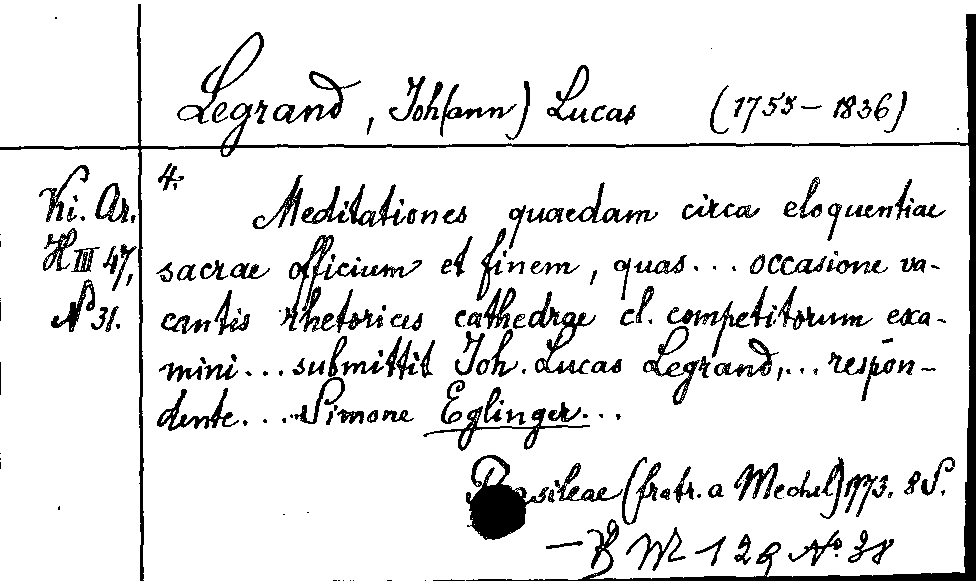 Legrand, Joh(ann) Lucas (1755-1836)
Ki. Ar.
H III 47,
N° 31.
4.
Meditationes quaedam circa eloquentiae
sacrae officium et finem, quas... occasione va-
cantis rhetorices cathedrae cl. competitorum exa-
mini... submittit Joh. Lucas Legrand,... respon-
dente... Simone Eglinger...
Basileae (fratr. a Mechel) 1773. 8 S.
- B M 1 29 N° 28